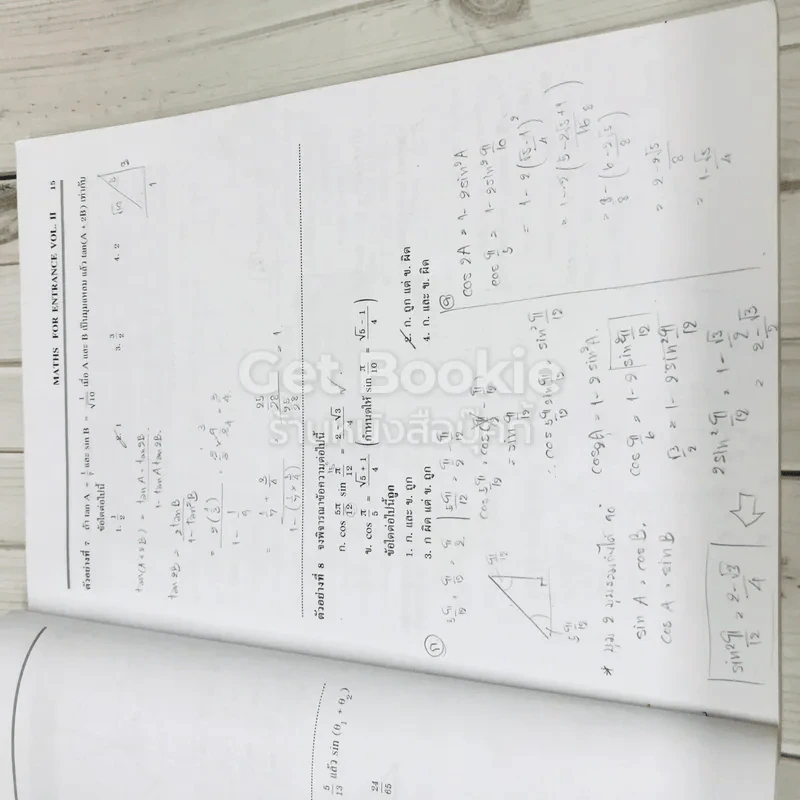 MATHS FOR ENTRANCE VOL. II 15
ตัวอย่างที่ 7 ถ้า tan A = 1/7 และ sin B = 1/√10 เมื่อ A และ B เป็นมุมแหลม แล้ว tan(A + 2B) เท่ากับ
ข้อใดต่อไปนี้
1. 1/2 2. 1 3. 3/2 4. 2
tan(A+2B) = tanA + tan2B
1 - tanA tan2B
tan 2B = 2tanB
1 - tan²B
ตัวอย่างที่ 8 จงพิจารณาข้อความต่อไปนี้
ก. cos 5π/12 sin π/12 = 2 - √3 / 4
ข. cos π/5 = √5 + 1 / 4 (กำหนดให้ sin π/10 = √5 - 1 / 4)
ข้อใดต่อไปนี้ถูก
1. ก. และ ข. ถูก 2. ก. ถูก แต่ ข. ผิด
3. ก ผิด แต่ ข. ถูก 4. ก. และ ข. ผิด
ก
cos 5π/12 = cos(π/2 - π/12)
= sin π/12
∴ cos 5π/12 sin π/12 = sin² π/12
* มุม 2 มุมรวมกันได้ 90°
sin A = cos B.
cos A = sin B
cos2A = 1 - 2 sin²A.
cos π/6 = 1 - 2 sin² π/12
√3/2 = 1 - 2 sin² π/12
2 sin² π/12 = 1 - √3/2
= 2-√3 / 2
sin² π/12 = 2-√3 / 4
ข
cos 2A = 1 - 2 sin²A
cos π/5 = 1 - 2 sin² π/10
= 1 - 2 (√5-1 / 4)²
= 1 - 2 (5 - 2√5 + 1 / 16)
= 8/8 - (6 - 2√5 / 8)
= 2-2√5 / 8
= 1-√5 / 4
5/13 แล้ว sin (θ₁ + θ₂)
24/65
Get Bookie
ร้านหนังสือบุ๊คกี้